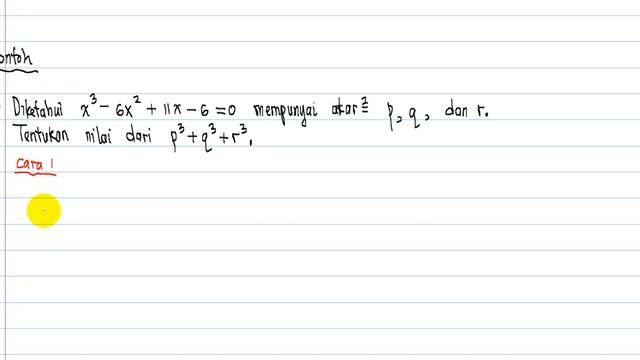 ontoh
Diketahui x³ - 6x² + 11x - 6 = 0 mempunyai akar² p, q, dan r.
Tentukan nilai dari p³ + q³ + r³.
Cara 1